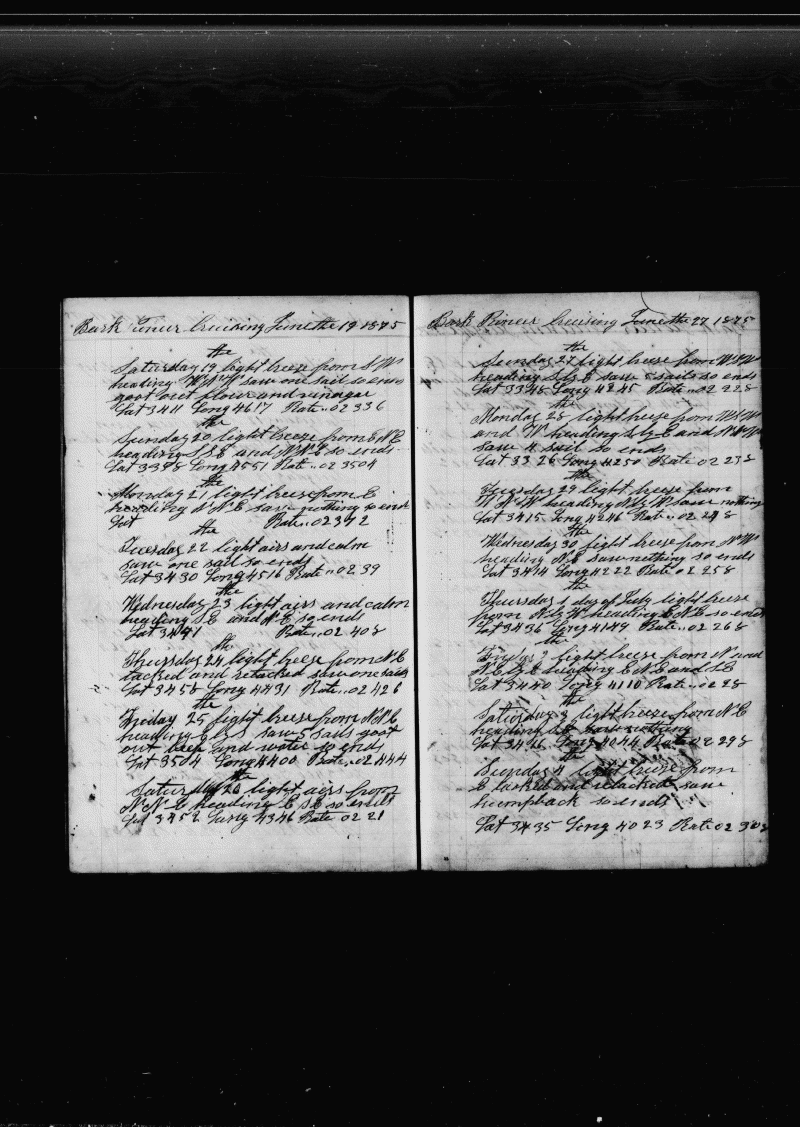 Bark Pioneer Cruising June the 19 1875
the
Saturday 19 light breeze from S W
heading W N W saw one sail so ends
goat out flour and vinagar
Lat 34 11 Long 46 17 Rate 02 336
the
Sunday 20 light breeze from E N E
heading S S E and N N E so ends
Lat 33 98 Long 45 51 Rate 02 3504
the
Monday 21 light breese from E
heading N N E saw nothing so ends
Lat Rate 02 372
the
Tuesday 22 light airs and calm
saw one sail so ends
Lat 34 30 Long 45 16 Rate 02 39
the
Wednesday 23 light airs and calm
heading S E and N E so ends
Lat 34 Rate 02 408
the
Thursday 24 light breese from N E
tacked and retacked saw one sail
Lat 34 58 Long 44 31 Rate 02 426
the
Friday 25 light breese from N N E
heading saw 5 sails goat
out beep and water so ends
Lat 35 04 Long 44 00 Rate 02 444
the
Saturday 26 light airs from
N N E heading E S E so ends
Lat 34 52 Long 43 46 Rate 02 21
Bark Pineer Cruising June the 27 1875
the
Sunday 27 light breese from W S W
heading S by E saw sails so ends
Lat 33 46 Long 42 45 Rate 02 228
the
Monday 28 light breese from W S W
and W heading S by E and N N W
saw 4 sail so ends
Lat 33 26 Long 42 50 Rate 02 238
the
Tuesday 29 light breese from
W N W heading N by W saw nothing
Lat 34 15 Long 42 46 Rate 02 248
the
Wednesday 30 light breese from N W
heading N E saw nething so ends
Lat 34 14 Long 42 22 Rate 02 258
the
Thursday 1 day of July light breese
from N by W heading E N E so ends
Lat 34 36 Long 41 49 Rate 02 268
the
Friday 2 light breese from N and
N E by E heading E N E and S E
Lat 34 40 Long 41 10 Rate 02 28
the
Saturday 3 light breese from N E
heading saw nothing
Lat 34 16 Long 40 44 Rate 02 298
the
Sunday 4 light breese from
E tacked and retacked saw
humpback so ends
Lat 34 35 Long 40 23 Rate 02 308